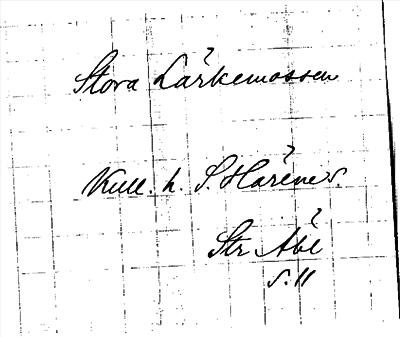 Stora Lärkemossen
Kull. h. S. Haréne s.
Str Åbl
s. 11